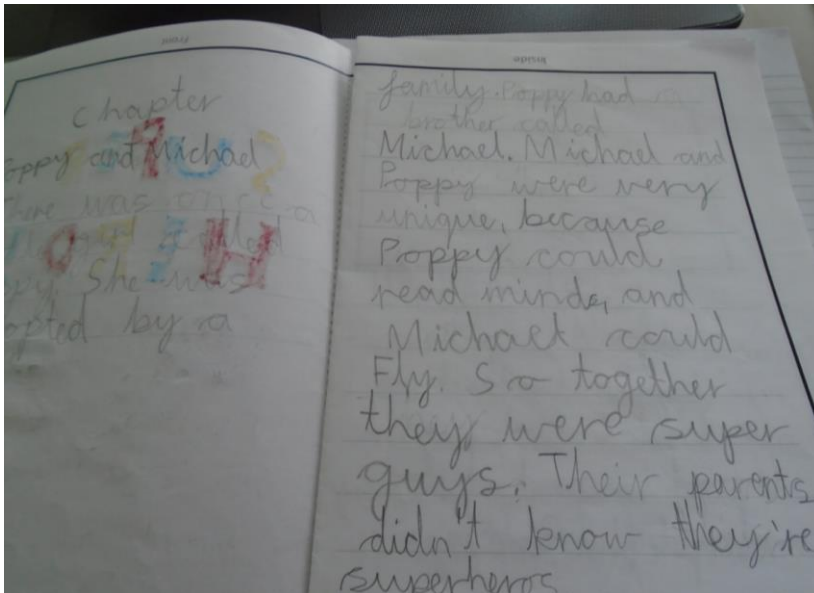 Front
Chapter
oppy and Michael
There was once a
called
ppy. She was
opted by a
Inside
family. Poppy had a
brother called
Michael. Michael and
Poppy were very
unique, because
Poppy could
read minds, and
Michael could
Fly. So together
they were super
guys. Their parents
didn't know they're
superheros